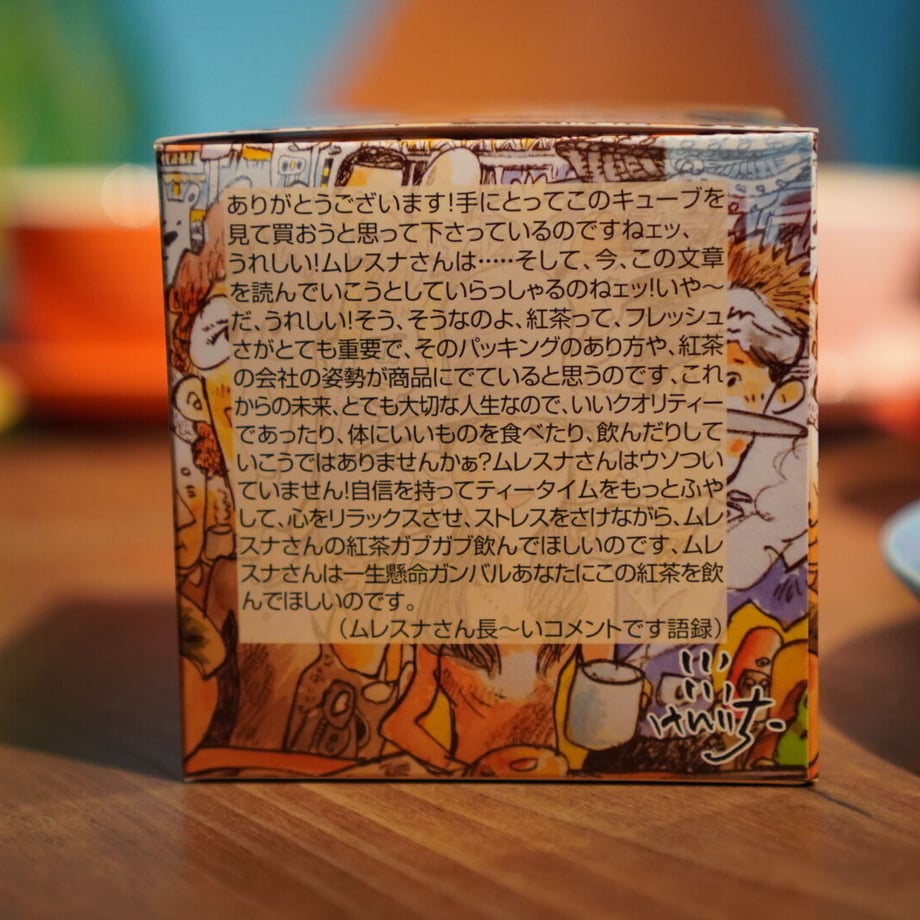 ありがとうございます!手にとってこのキューブを
見て買おうと思って下さっているのですねェッ、
うれしい!ムレスナさんは……そして、今、この文章
を読んでいこうとしていらっしゃるのねェッ!いや〜
だ、うれしい!そう、そうなのよ、紅茶って、フレッシュ
さがとても重要で、そのパッキングのあり方や、紅茶
の会社の姿勢が商品にでていると思うのです、これ
からの未来、とても大切な人生なので、いいクオリティー
であったり、体にいいものを食べたり、飲んだりして
いこうではありませんかぁ?ムレスナさんはウソつい
ていません!自信を持ってティータイムをもっとふや
して、心をリラックスさせ、ストレスをさけながら、ムレ
スナさんの紅茶ガブガブ飲んでほしいのです、ムレ
スナさんは一生懸命ガンバルあなたにこの紅茶を飲
んでほしいのです。
(ムレスナさん長〜いコメントです語録)